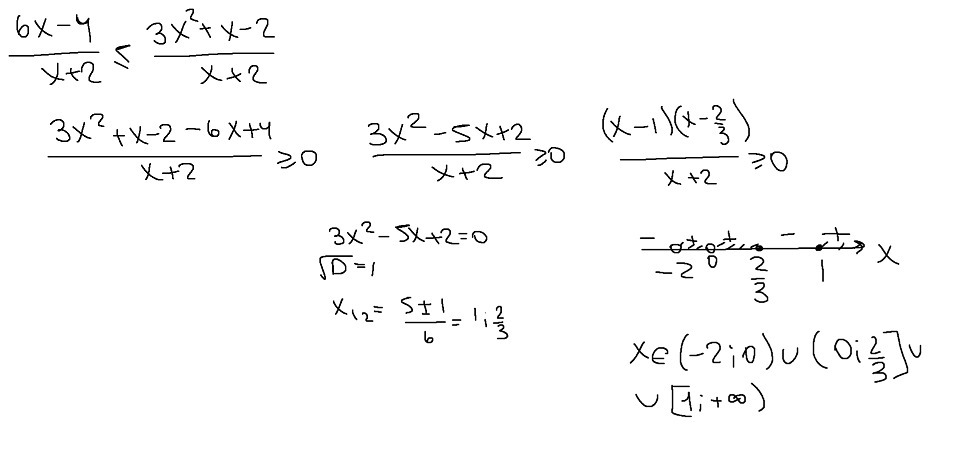 (6x-4)/(x+2) ≤ (3x²+x-2)/(x+2)
(3x²+x-2-6x+4)/(x+2) ≥0 (3x²-5x+2)/(x+2) ≥0 (x-1)(x-2/3)/(x+2) ≥0
3x²-5x+2=0
√D=1
x₁,₂= (5±1)/6 = 1; 2/3
- + + - + x
-2 0 2/3 1
x∈(-2;0)∪(0;2/3]∪
∪[1;+∞)